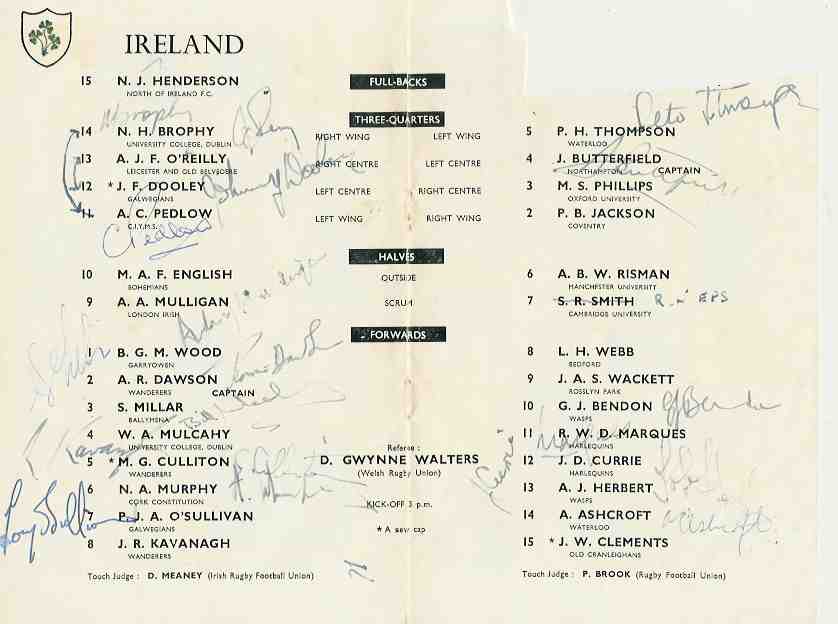 IRELAND
15 N. J. HENDERSON
NORTH OF IRELAND F.C.
FULL-BACKS
THREE-QUARTERS
14 N. H. BROPHY
UNIVERSITY COLLEGE, DUBLIN
RIGHT WING LEFT WING
5 P. H. THOMPSON
WATERLOO
13 A. J. F. O'REILLY
LEICESTER AND OLD BELVEDERE
RIGHT CENTRE LEFT CENTRE
4 J. BUTTERFIELD
NORTHAMPTON CAPTAIN
12 * J. F. DOOLEY
GALWEGIANS
LEFT CENTRE RIGHT CENTRE
3 M. S. PHILLIPS
OXFORD UNIVERSITY
11 A. C. PEDLOW
C.I.Y.M.S.
LEFT WING RIGHT WING
2 P. B. JACKSON
COVENTRY
A C Pedlow
HALVES
10 M. A. F. ENGLISH
BOHEMIANS
OUTSIDE
6 A. B. W. RISMAN
MANCHESTER UNIVERSITY
9 A. A. MULLIGAN
LONDON IRISH
SCRUM
7 S. R. SMITH
CAMBRIDGE UNIVERSITY
FORWARDS
1 B. G. M. WOOD
GARRYOWEN
8 L. H. WEBB
BEDFORD
2 A. R. DAWSON
WANDERERS CAPTAIN
9 J. A. S. WACKETT
ROSSLYN PARK
3 S. MILLAR
BALLYMENA
10 G. J. BENDON
WASPS
G J Bendon
4 W. A. MULCAHY
UNIVERSITY COLLEGE, DUBLIN
11 R. W. D. MARQUES
HARLEQUINS
5 * M. G. CULLITON
WANDERERS
12 J. D. CURRIE
HARLEQUINS
Referee :
D. GWYNNE WALTERS
(Welsh Rugby Union)
6 N. A. MURPHY
CORK CONSTITUTION
13 A. J. HERBERT
WASPS
KICK-OFF 3 p.m.
7 P. J. A. O'SULLIVAN
GALWEGIANS
14 A. ASHCROFT
WATERLOO
A Ashcroft
* A new cap
8 J. R. KAVANAGH
WANDERERS
15 * J. W. CLEMENTS
OLD CRANLEIGHANS
Touch Judge : D. MEANEY (Irish Rugby Football Union)
Touch Judge : P. BROOK (Rugby Football Union)